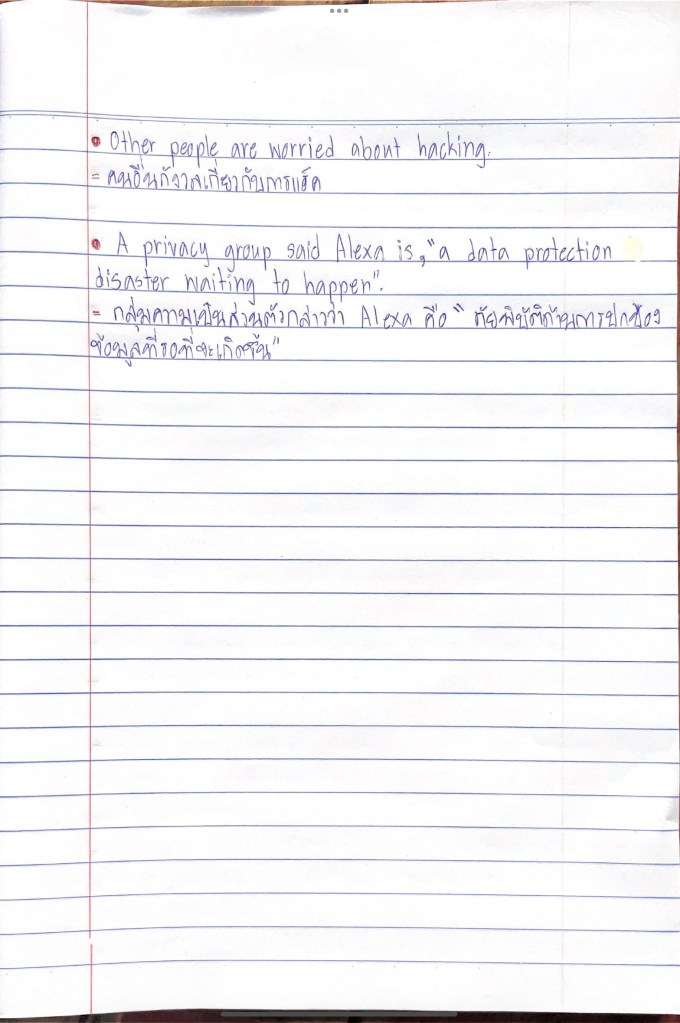 • Other people are worried about hacking.
= คนอื่นกังวลเกี่ยวกับการแฮ็ค
• A privacy group said Alexa is, "a data protection
disaster waiting to happen".
= กลุ่มความเป็นส่วนตัวกล่าวว่า Alexa คือ " ภัยพิบัติด้านการปกป้อง
ข้อมูลที่รอที่จะเกิดขึ้น"